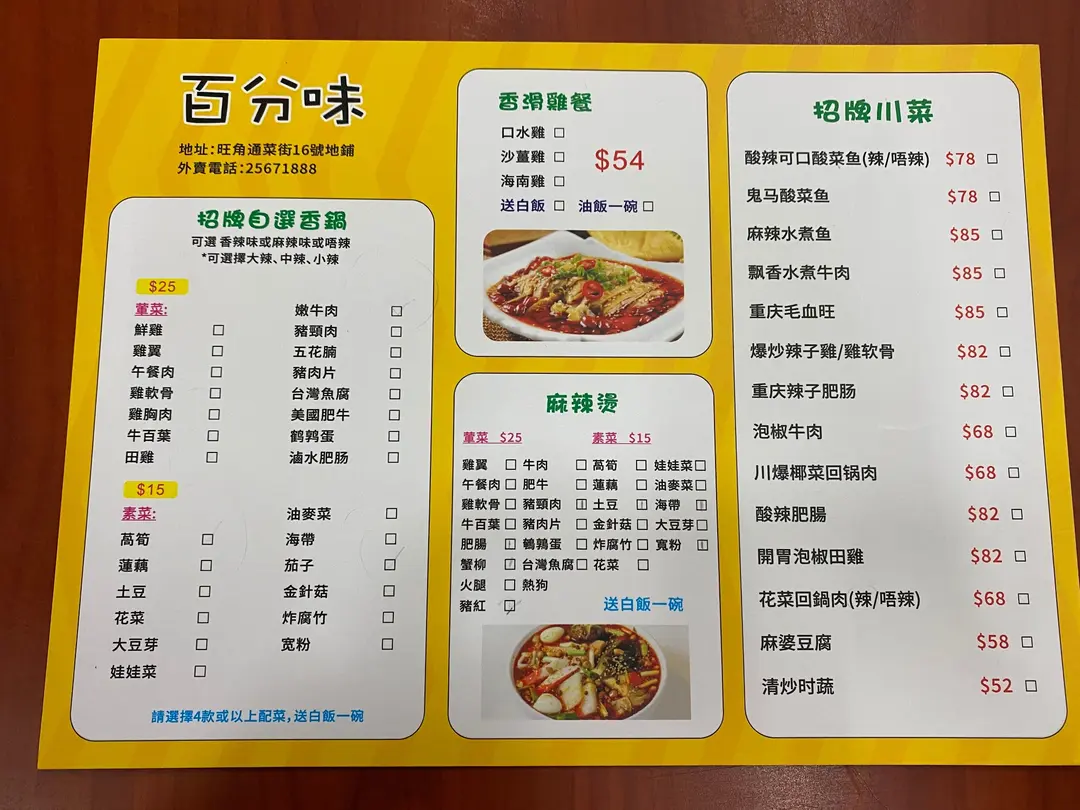 百分味
地址:旺角通菜街16號地鋪
外賣電話:25671888
招牌自選香鍋
可選 香辣味或麻辣味或唔辣
*可選擇大辣、中辣、小辣
$25
葷菜:
鮮雞
雞翼
午餐肉
雞軟骨
雞胸肉
牛百葉
田雞
嫩牛肉
豬頸肉
五花腩
豬肉片
台灣魚腐
美國肥牛
鹌鹑蛋
滷水肥肠
$15
素菜:
萵筍
蓮藕
土豆
花菜
大豆芽
娃娃菜
油麥菜
海帶
茄子
金針菇
炸腐竹
宽粉
請選擇4款或以上配菜,送白飯一碗
香滑雞餐
口水雞
沙薑雞
海南雞
$54
送白飯 油飯一碗
麻辣燙
葷菜 $25 素菜 $15
雞翼 牛肉 萵筍 娃娃菜
午餐肉 肥牛 蓮藕 油麥菜
雞軟骨 豬頸肉 土豆 海帶
牛百葉 豬肉片 金針菇 大豆芽
肥腸 鵪鶉蛋 炸腐竹 寬粉
蟹柳 台灣魚腐 花菜
火腿 熱狗
豬紅
送白飯一碗
招牌川菜
酸辣可口酸菜鱼(辣/唔辣) $78
鬼马酸菜鱼 $78
麻辣水煮鱼 $85
飘香水煮牛肉 $85
重庆毛血旺 $85
爆炒辣子雞/雞软骨 $82
重庆辣子肥肠 $82
泡椒牛肉 $68
川爆椰菜回锅肉 $68
酸辣肥腸 $82
開胃泡椒田雞 $82
花菜回鍋肉(辣/唔辣) $68
麻婆豆腐 $58
清炒时蔬 $52